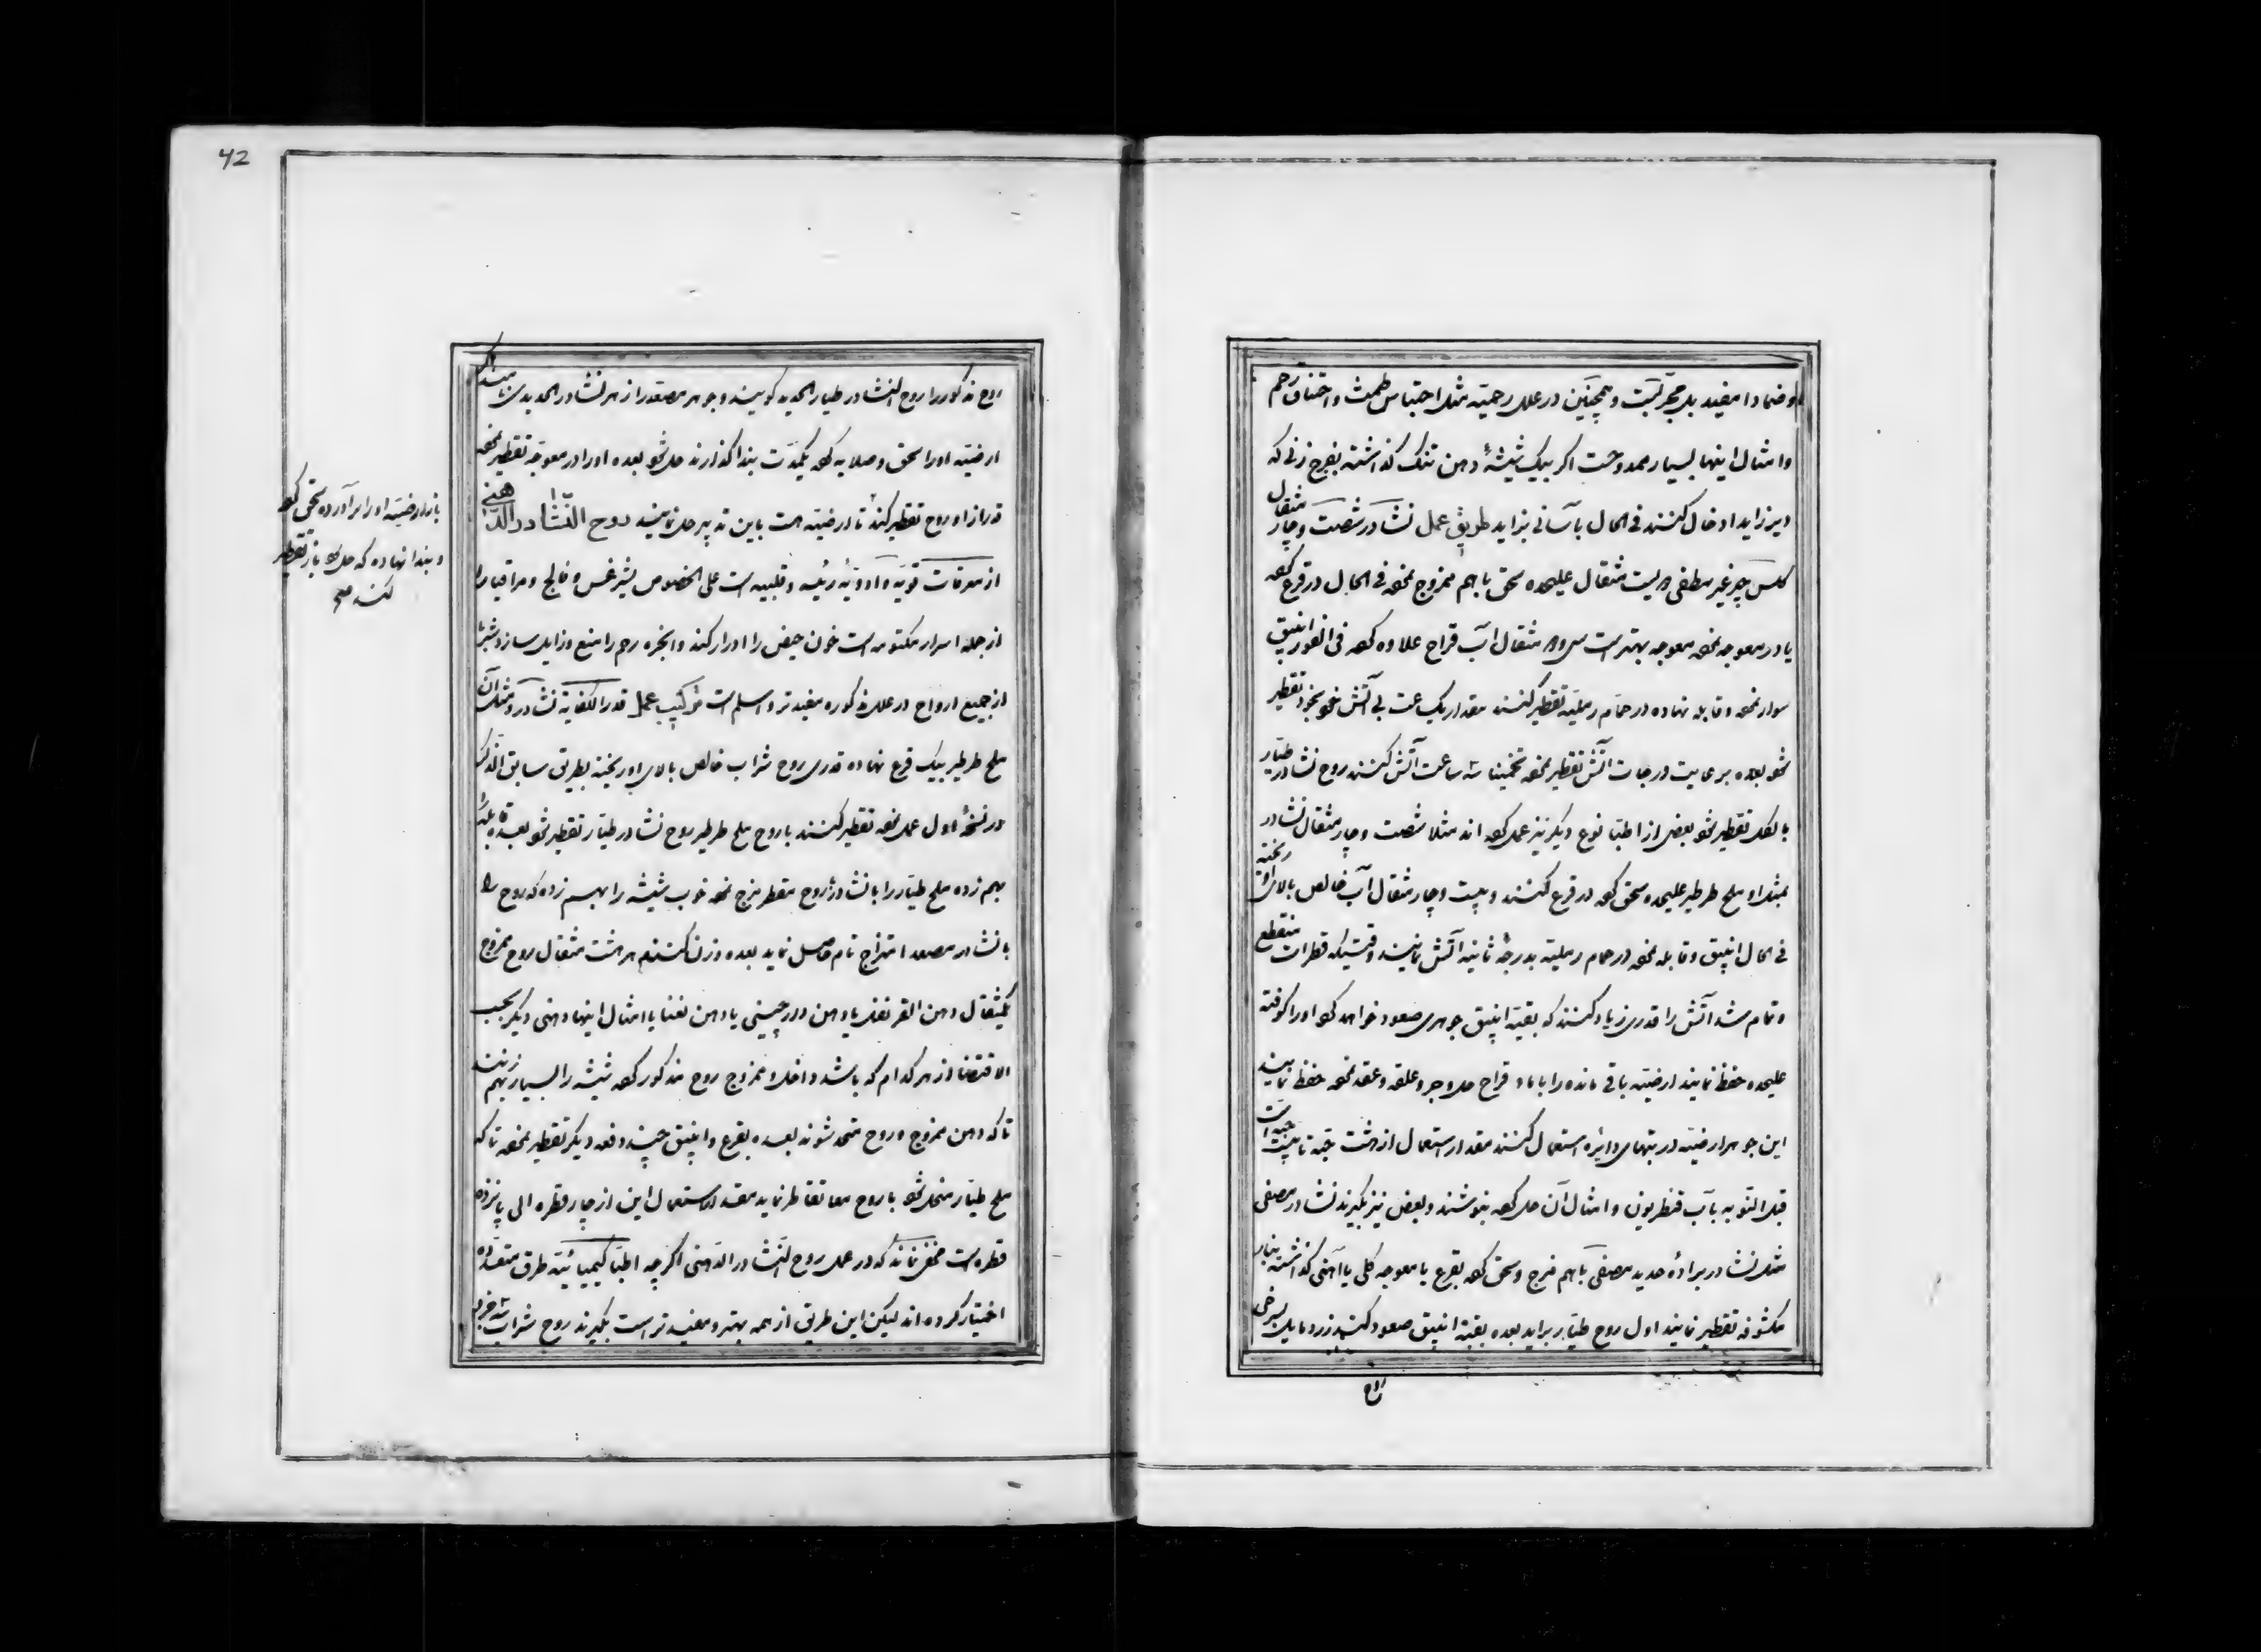 و ضمادا مفید بل مجربست و همچنین در علل رحمیه مثل احتباس طمث و اختناق رحم
و امثال اینها بسیار ممدوحست اکر بیک شیشهٔ دهن تنک کذاشته بفرج زنی که
دیر زاید ادخال کنند فی الحال بآسانی بزاید طریق عمل نشادر شصت و چار مثقال
کلس حجر غیر مطفی بیست مثقال علیحده سحق باهم ممزوج نموده فی الحال در قرع کرده
یا در معوجه نموده معوجه بهتر است سی و مثقال آب قراح علاوه کرده فی الفور انبیق
سوار نموده و قابله نهاده در حمام رملیه تقطیر کنند مقدار یک ساعت بی آتش خود بخود تقطیر
شود بعده برعایت درجات آتش تقطیر نموده تخمینا ساعت آتش کنند روح نشادر طیار
بالکل تقطیر شود بعضی از اطبا نوع دیکر نیز عمل کرده اند مثلا شصت و چار مثقال نشادر
بمثل او ملح طرطیر علیحده سحق کرده در قرع کنند و بیست و چار مثقال آب خالص بالای او ریخته
فی الحال انبیق و قابله نموده در حمام رملیه بدرجهٔ ثانیه آتش نمایند وقتیکه قطرات منقطع
و تمام شد آتش را قدری زیاد کنند که بقبهٔ انبیق جوهری صعود خواهد کرد او را کوفته
علیحده حفظ نمایند ارضیه باقی مانده را با ماء قراح حل و جر و علقه و عقد نموده حفظ نمایند
این جوهر ارضیه در تبهای دائره استعمال کنند مقدار استعمال از هشت حبه تا بیست حبه است
قبل النوبه بآب قنطریون و امثال آن حل کرده بنوشند و بعضی نیز بکیرند نشادر مصفی
مثل نشادر برادهٔ حدید مصفی باهم مزج و سحق کرده بقرع یا معوجه کلی یا آهنی کذاشته بنار
مکشوفه تقطیر نمایند اول روح طیار براید بعده بقبهٔ انبیق صعود کند زرد مایل بسرخی
روح
42
روح مذکور را روح النشادر طیار الحدید کویند و جوهر مصعد را زهر نشادر الحدیدی نامیده اند
ارضیه او را سحق و صلایه کرده یکمدت بندا کذارند حل شود بعده او را در معوجه تقطیر نموده
قدر از او روح تقطیر کند تا در ارضیه هست باین تدبیر حل نمایند روح النشادر الدهنی
از معرقات قویه و ادویهٔ رئیسه و قلبیه است علی الخصوص بشرغس و فالج و مراقیا را
از جمله اسرار مکتومه است خون حیض را ادرار کند و ابخره رحم را منع و زایل سازد
از جمیع ارواح در علل مذکوره مفید تر و اسلم است ترکیب عمل قدر الکفایة نشادر و مثل آن
ملح طرطیر بیک قرع نهاده قدری روح شراب خالص بالای او ریخته بطریق سابق الذکر
در نسخهٔ اول عمل نموده تقطیر کنند با روح ملح طرطیر روح نشادر طیار تقطیر شود بعده قابله را
بهم زده ملح طیار را با نشادر روح مقطر مزج نموده خوب شیشه را بهم زده که روح را
با نشادر مصعد امتزاج تام حاصل نماید بعده وزن کنند هر هشت مثقال روح ممزوج
یکمثقال دهن القرنفل یا دهن دارچینی یا دهن نعنا یا امثال اینها دهنی دیکر بحسب
الاقتضا از هر کدام که باشد داخل و ممزوج روح مذکور کرده شیشه را بسیار بهم زنند
تا که دهن ممزوج و روح متحد شوند بعده بقرع و انبیق چند دفعه دیکر تقطیر نموده تا که
ملح طیار منحل شود با روح معا تقاطر نماید مقدار استعمال این از چار قطره الی پانزده
قطره است مخفی نماند که در عمل روح النشادر الدهنی اکرچه اطبا کیمیائیه طرق متعدده
اختیار کرده اند لیکن این طریق از همه بهتر و مفید تر است بکیرند روح شراب
باز ارضیه او را برآورده سحق کرده
و بندا نهاده که حل شود باز تقطیر
کنند صح